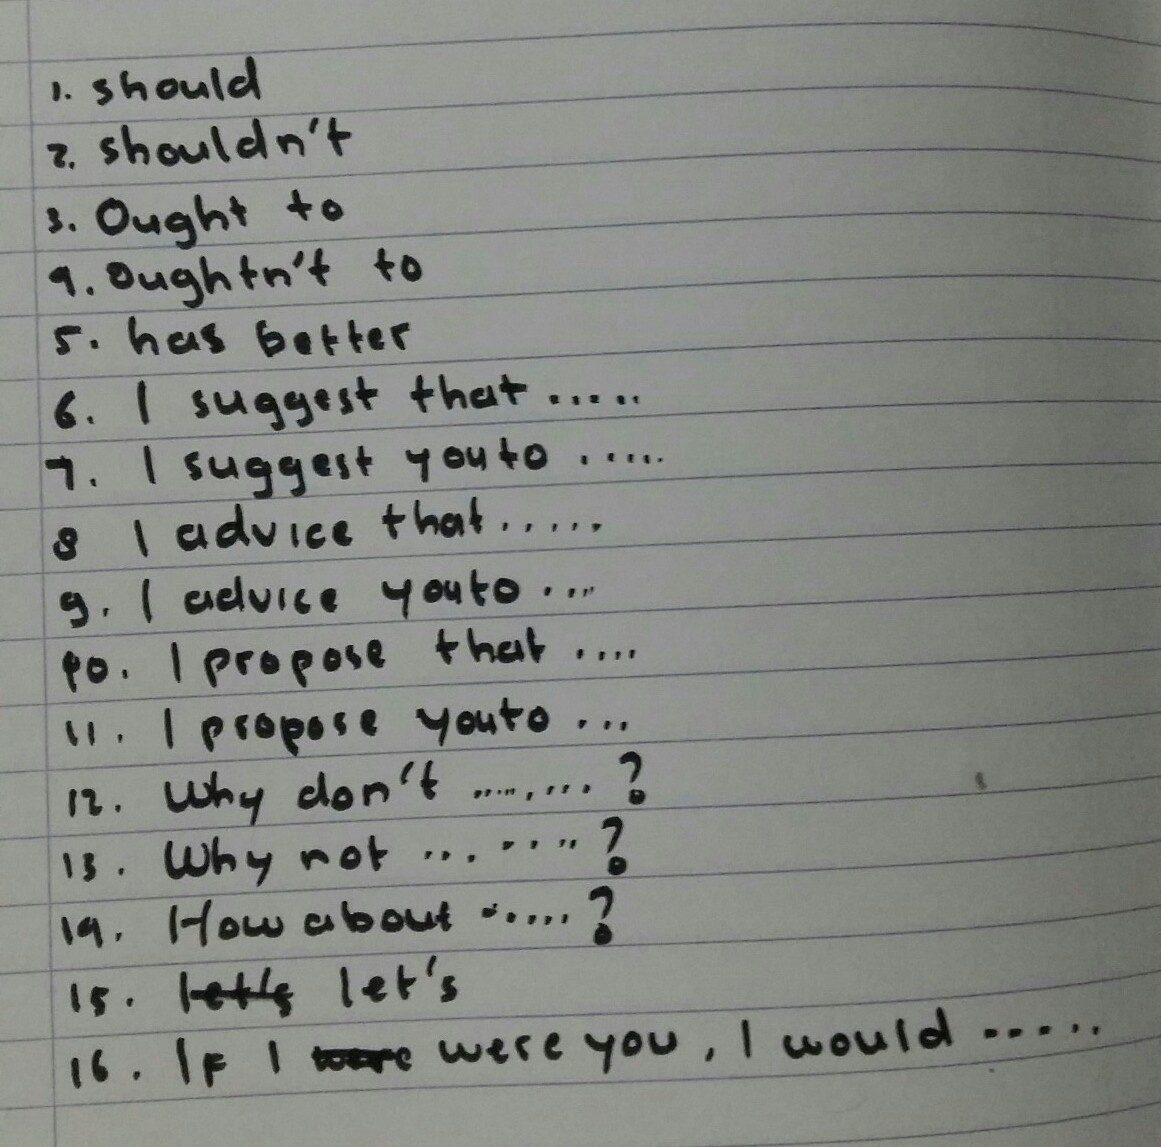 1. should
2. shouldn't
3. Ought to
4. Oughtn't to
5. has better
6. I suggest that .....
7. I suggest you to .....
8 I advice that .....
9. I advice you to ....
10. I propose that ....
11. I propose you to ...
12. Why don't ........ ?
13. Why not ........ ?
14. How about ...... ?
15. let's let's
16. If I were you, I would .....